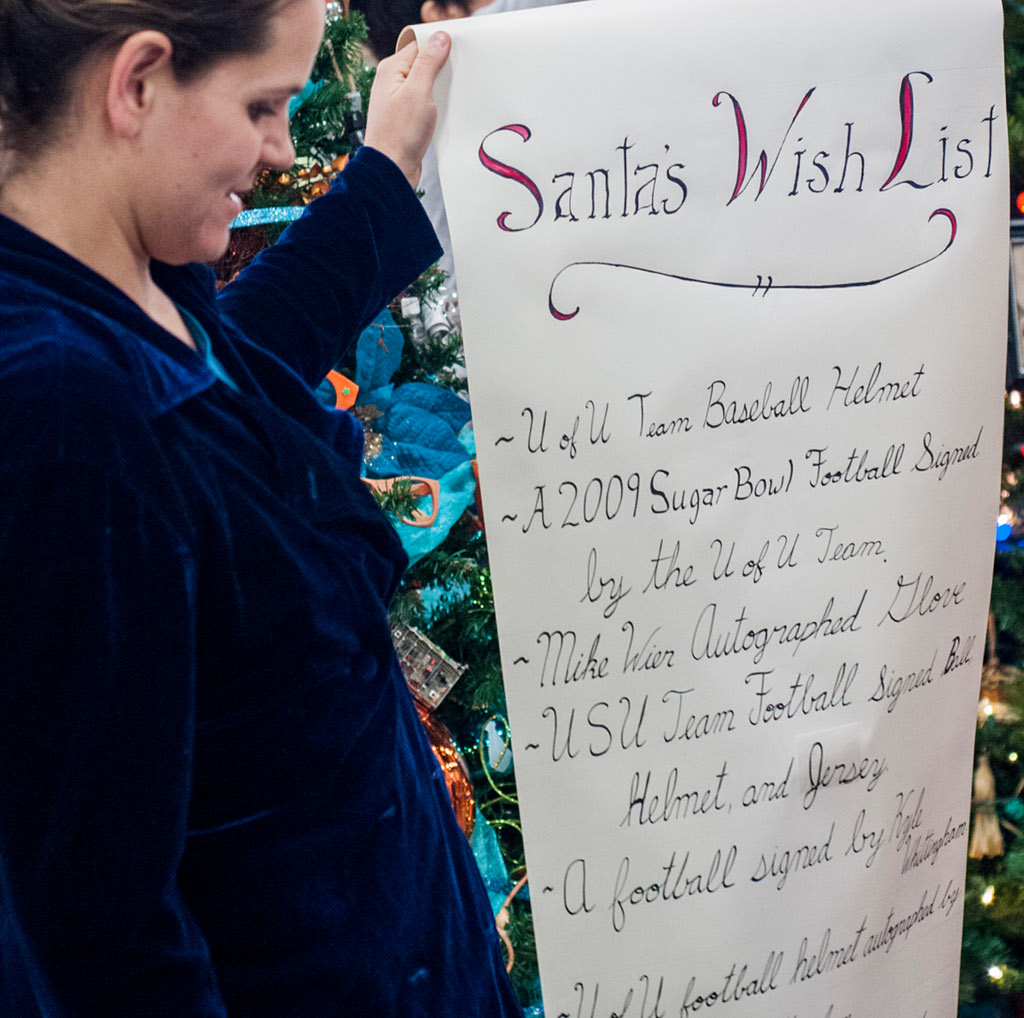 Santa's Wish List
~U of U Team Baseball Helmet
~A 2009 Sugar Bowl Football Signed
by the U of U Team.
~Mike Wier Autographed Glove
~USU Team Football Signed Ball,
Helmet, and Jersey.
~A football signed by Kyle
Whittingham
~U of U football helmet autographed by